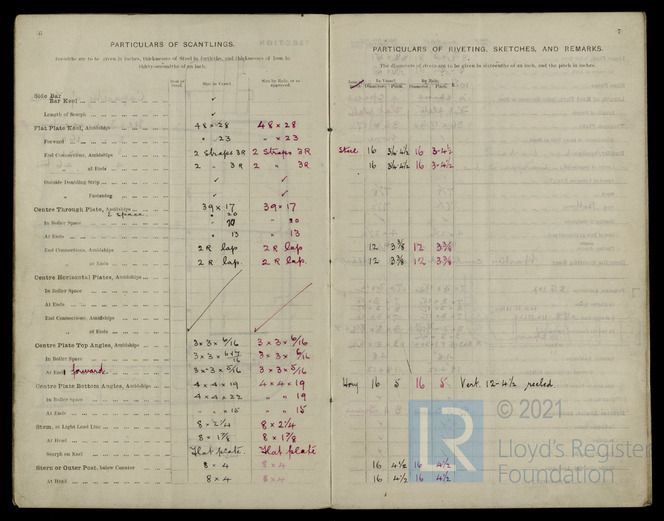 6
PARTICULARS OF SCANTLINGS.
Breadths are to be given in inches, thicknesses of Steel in fortieths, and thicknesses of Iron in
thirty-seconds of an inch.
Size in Vessel. Size by Rule, or as approved.
Side Bar
Bar Keel ✓
Length of Scarph ✓
Flat Plate Keel, Amidships 48 × 28 48 × 28
Forward " 23 " × 23
End Connections, Amidships 2 Straps 3R 2 Straps 3R
at Ends 2 " 3R 2 " 3R
Outside Doubling Strip ✓ ✓
" Fastening ✓ ✓
Centre Through Plate, Amidships 39 × 17 39 × 17
In Boiler Space " 20 " 20
At Ends " 13 " 13
End Connections, Amidships 2R lap 2R lap
at Ends 2R lap. 2R lap.
Centre Horizontal Plates, Amidships
In Boiler Space
At Ends
End Connections, Amidships
" at Ends
Centre Plate Top Angles, Amidships 3 × 3 × 6/16 3 × 3 × 6/16
In Boiler Space 3 × 3 × 6/16 3 × 3 × 6/16
At Ends forward 3 × 3 × 5/16 3 × 3 × 5/16
Centre Plate Bottom Angles, Amidships 4 × 4 × 19 4 × 4 × 19
In Boiler Space 4 × 4 × 22 " " 19
At Ends " " × 15 " " 15
Stem, at Light Load Line 8 × 2 1/4 8 × 2 1/4
At Head 8 × 1 7/8 8 × 1 7/8
Scarph on Keel Flat plate. Flat plate
Stern or Outer Post, below Counter 8 × 4 8 × 4
At Head 8 × 4 8 × 4
7
PARTICULARS OF RIVETING, SKETCHES, AND REMARKS.
The diameters of rivets are to be given in sixteenths of an inch, and the pitch in inches.
In Vessel. By Rule.
Diameter. Pitch. Diameter. Pitch.
Steel 16 3¾-4½ 16 3-4½
16 3¾-4½ 16 3-4½
12 3 3/8 12 3 3/8
12 3 3/8 12 3 3/8
16 5 16 5 Vert 12-4½ reeled.
16 4½ 16 4½
16 4½ 16 4½
© 2021
LR
Lloyd's Register
Foundation